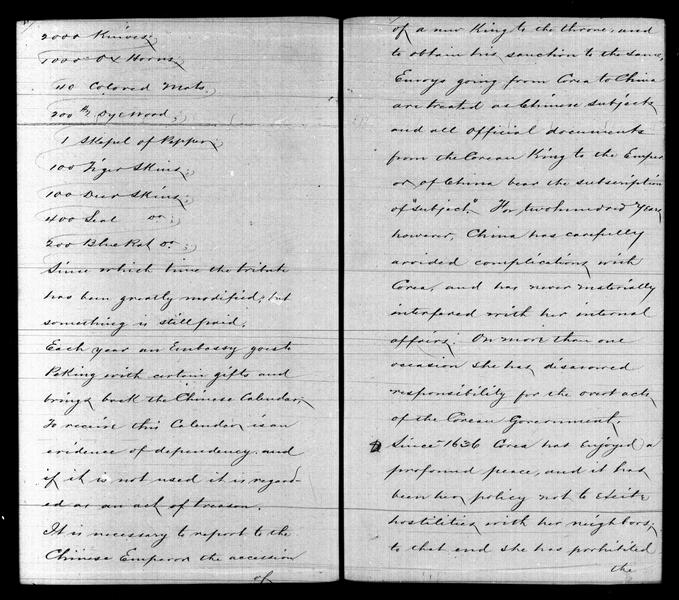 2000 Knives;
1000 Ox Horns
40 Colored Mats
200 lbs Dye Wood;
1 Skapel of Pepper;
100 Tiger Skins;
100 Deer Skins;
400 Seal do;
200 Blue Rat do;
Since which time the tribute
has been greatly modified, but
something is still paid.
Each year an Embassy goes to
Peking with certain gifts and
brings back the Chinese Calendar,
To receive this Calendar is an
evidence of dependency, and
if it is not used it is regard-
ed as an act of treason.
It is necessary to report to the
Chinese Emperor the accession
of
of a new King to the throne, and
to obtain his sanction to the same,
Envoys going from Corea to China
are treated as Chinese subjects
and all official documents
from the Corean King to the Emper
or of China bear the subscription
of "subject." For two hundred years
however, China has carefully
avoided complications with
Corea, and has never materially
interfered with her internal
affairs. On more than one
occasion she has disavowed
responsibility for the overt acts
of the Corean Government.
Since 1636 Corea has enjoyed a
profound peace, and it has
been her policy not to excite
hostilities with her neighbors;
to that end she has prohibited
the